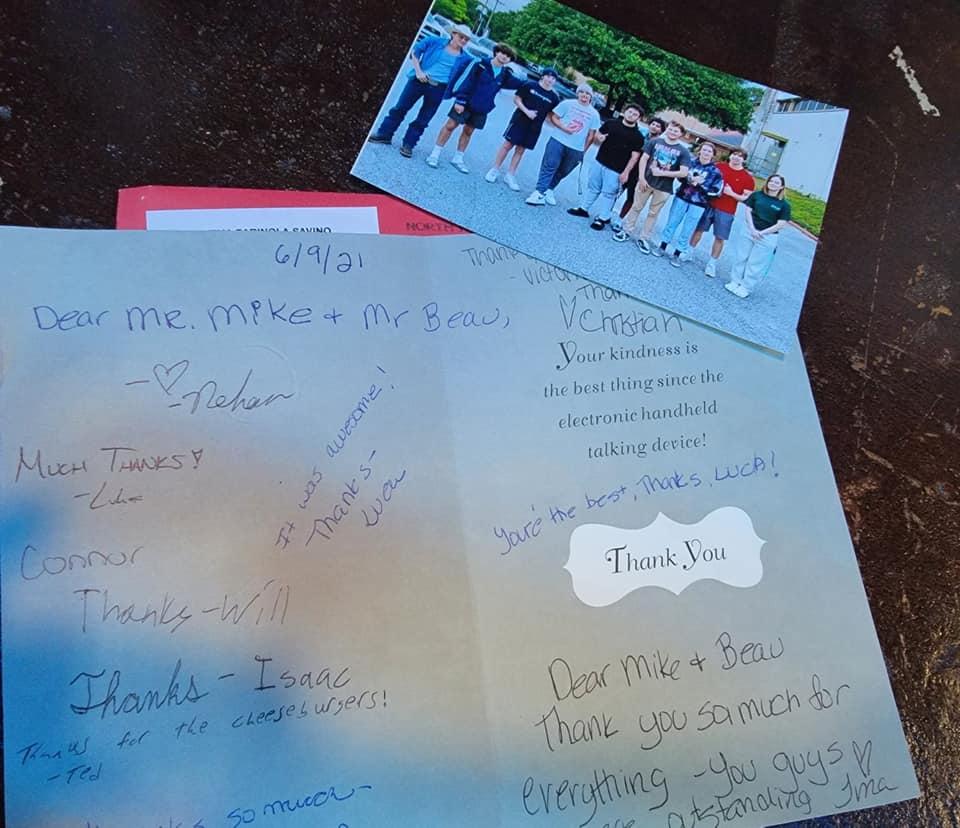 SAVINO
NORTH
6/9/21
Dear Mr. Mike + Mr Beau,
- ♡
- Nehan
Much Thanks!
- Luke
It was awesome!
Thanks -
Connor
Thanks - Will
Thanks - Isaac
Thanks for the cheeseburgers!
- Ted
so much -
Thank
- Victor
Than
♡ Christian
Your kindness is
the best thing since the
electronic handheld
talking device!
You're the best, Thanks, LUCA!
Thank You
Dear Mike + Beau
Thank you so much for
everything - You guys ♡
outstanding